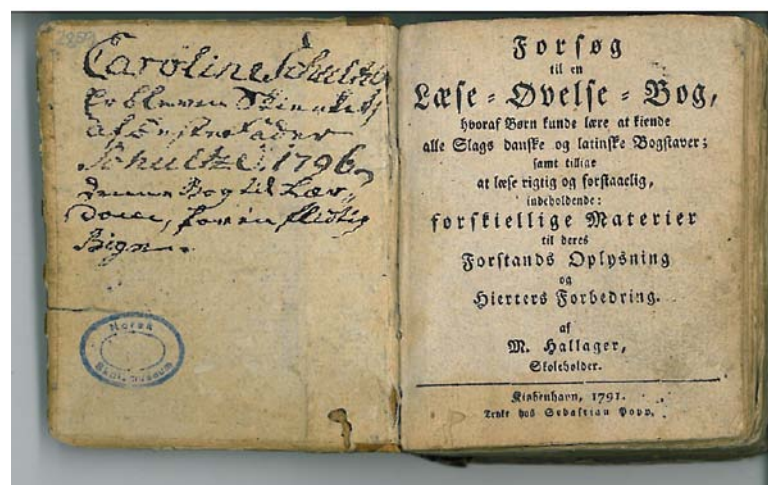 2859
Caroline Schultz
Er bleven Skienket
af
Schultze. 1796
denne Bog til Lær„
dom, for en flittig
Norsk
museum
Forsøg
til en
Læse = Øvelse = Bog,
hvoraf Børn kunde lære at kiende
alle Slags danske og latinske Bogstaver;
samt tillige
at læse rigtig og forstaaelig,
indeholdende:
forskiellige Materier
til deres
Forstands Oplysning
og
Hierters Forbedring.
af
M. Hallager,
Skoleholder.
Kiøbenhavn, 1791.
Trykt hos Sebastian Popp.